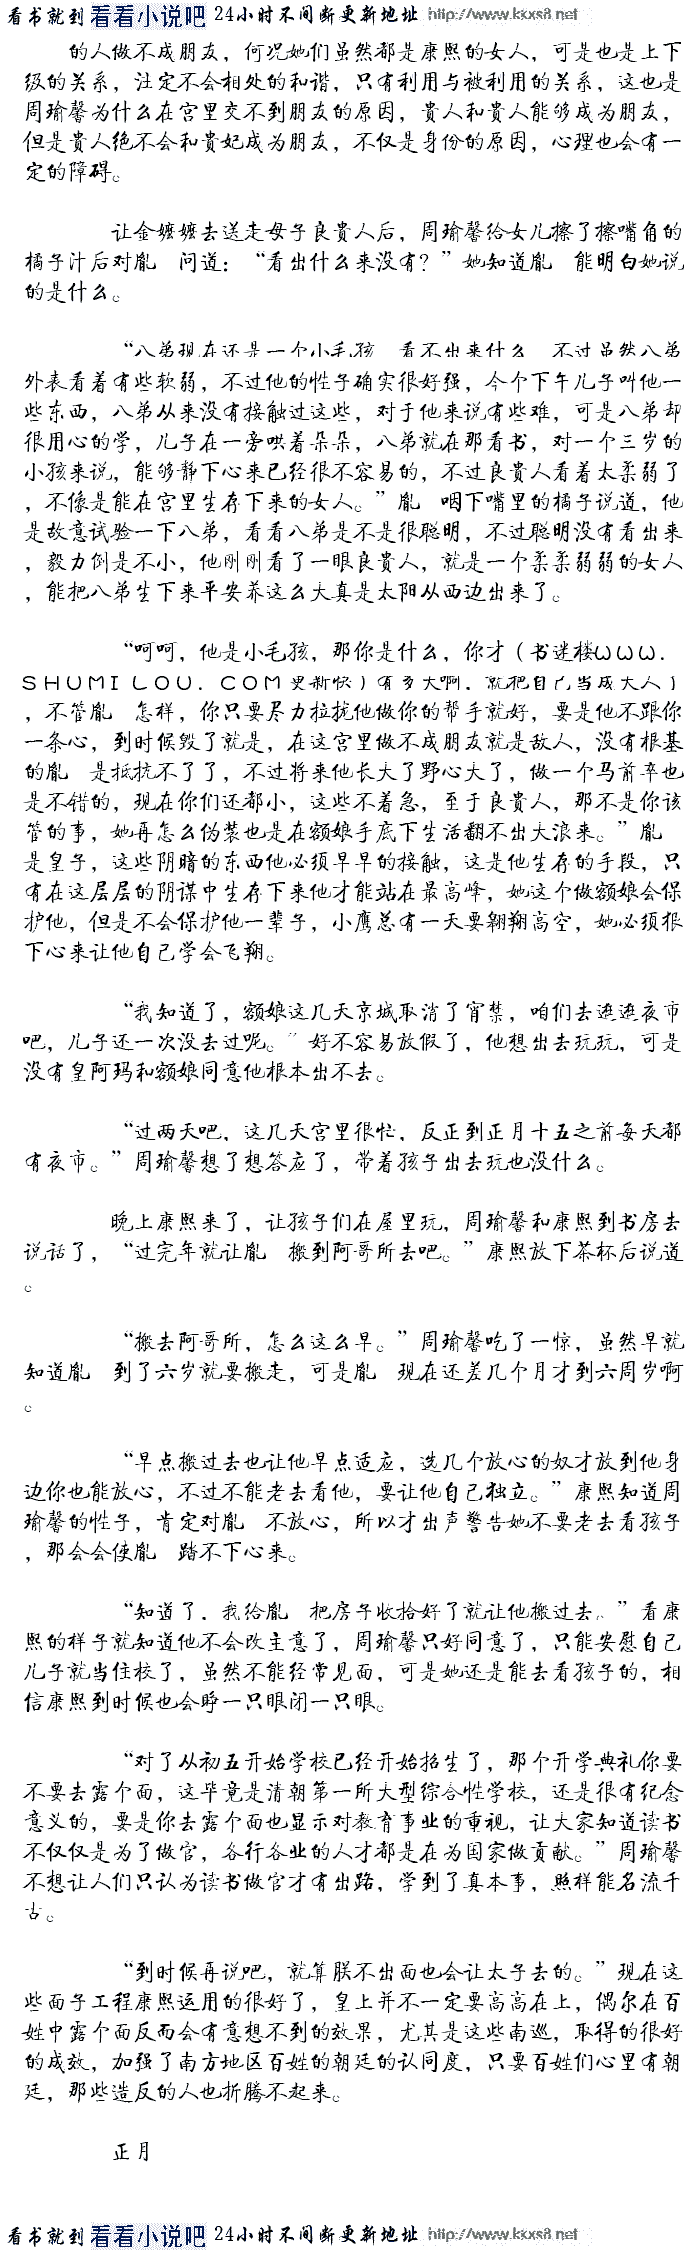 看书就到 看看小说吧 24小时不间断更新地址 http://www.kkxs8.net
的人做不成朋友，何况她们虽然都是康熙的女人，可是也是上下
级的关系，注定不会相处的和谐，只有利用与被利用的关系，这也是
周瑜馨为什么在宫里交不到朋友的原因，贵人和贵人能够成为朋友，
但是贵人绝不会和贵妃成为朋友，不仅是身份的原因，心理也会有一
定的障碍。
让金嬷嬷去送走母子良贵人后，周瑜馨给女儿擦了擦嘴角的
橘子汁后对胤 问道：“看出什么来没有？”她知道胤 能明白她说
的是什么。
“八弟现在还是一个小毛孩 看不出来什么 不过虽然八弟
外表看着有些软弱，不过他的性子确实很好强，今个下午儿子叫他一
些东西，八弟从来没有接触过这些，对于他来说有些难，可是八弟却
很用心的学，儿子在一旁哄着朵朵，八弟就在那看书，对一个三岁的
小孩来说，能够静下心来已经很不容易的，不过良贵人看着太柔弱了
，不像是能在宫里生存下来的女人。”胤 咽下嘴里的橘子说道，他
是故意试验一下八弟，看看八弟是不是很聪明，不过聪明没有看出来
，毅力倒是不小，他刚刚看了一眼良贵人，就是一个柔柔弱弱的女人
，能把八弟生下来平安养这么大真是太阳从西边出来了。
“呵呵，他是小毛孩，那你是什么，你才（书迷楼ωωω．
ＳＨＵＭＩＬＯＵ．ＣＯＭ更新快）有多大啊，就把自己当成大人了
，不管胤 怎样，你只要尽力拉拢他做你的帮手就好，要是他不跟你
一条心，到时候毁了就是，在这宫里做不成朋友就是敌人，没有根基
的胤 是抵抗不了了，不过将来他长大了野心大了，做一个马前卒也
是不错的，现在你们还都小，这些不着急，至于良贵人，那不是你该
管的事，她再怎么伪装也是在额娘手底下生活翻不出大浪来。”胤
是皇子，这些阴暗的东西他必须早早的接触，这是他生存的手段，只
有在这层层的阴谋中生存下来他才能站在最高峰，她这个做额娘会保
护他，但是不会保护他一辈子，小鹰总有一天要翱翔高空，她必须狠
下心来让他自己学会飞翔。
“我知道了，额娘这几天京城取消了宵禁，咱们去逛逛夜市
吧，儿子还一次没去过呢。”好不容易放假了，他想出去玩玩，可是
没有皇阿玛和额娘同意他根本出不去。
“过两天吧，这几天宫里很忙，反正到正月十五之前每天都
有夜市。”周瑜馨想了想答应了，带着孩子出去玩也没什么。
晚上康熙来了，让孩子们在屋里玩，周瑜馨和康熙到书房去
说话了，“过完年就让胤 搬到阿哥所去吧。”康熙放下茶杯后说道
。
“搬去阿哥所，怎么这么早。”周瑜馨吃了一惊，虽然早就
知道胤 到了六岁就要搬走，可是胤 现在还差几个月才到六周岁啊
。
“早点搬过去也让他早点适应，选几个放心的奴才放到他身
边你也能放心，不过不能老去看他，要让他自己独立。”康熙知道周
瑜馨的性子，肯定对胤 不放心，所以才出声警告她不要老去看孩子
，那会会使胤 踏不下心来。
“知道了，我给胤 把房子收拾好了就让他搬过去。”看康
熙的样子就知道他不会改主意了，周瑜馨只好同意了，只能安慰自己
儿子就当住校了，虽然不能经常见面，可是她还是能去看孩子的，相
信康熙到时候也会睁一只眼闭一只眼。
“对了从初五开始学校已经开始招生了，那个开学典礼你要
不要去露个面，这毕竟是清朝第一所大型综合性学校，还是很有纪念
意义的，要是你去露个面也显示对教育事业的重视，让大家知道读书
不仅仅是为了做官，各行各业的人才都是在为国家做贡献。”周瑜馨
不想让人们只认为读书做官才有出路，学到了真本事，照样能名流千
古。
“到时候再说吧，就算朕不出面也会让太子去的。”现在这
些面子工程康熙运用的很好了，皇上并不一定要高高在上，偶尔在百
姓中露个面反而会有意想不到的效果，尤其是这些南巡，取得的很好
的成效，加强了南方地区百姓的朝廷的认同度，只要百姓们心里有朝
廷，那些造反的人也折腾不起来。
正月
看书就到 看看小说吧 24小时不间断更新地址 http://www.kkxs8.net